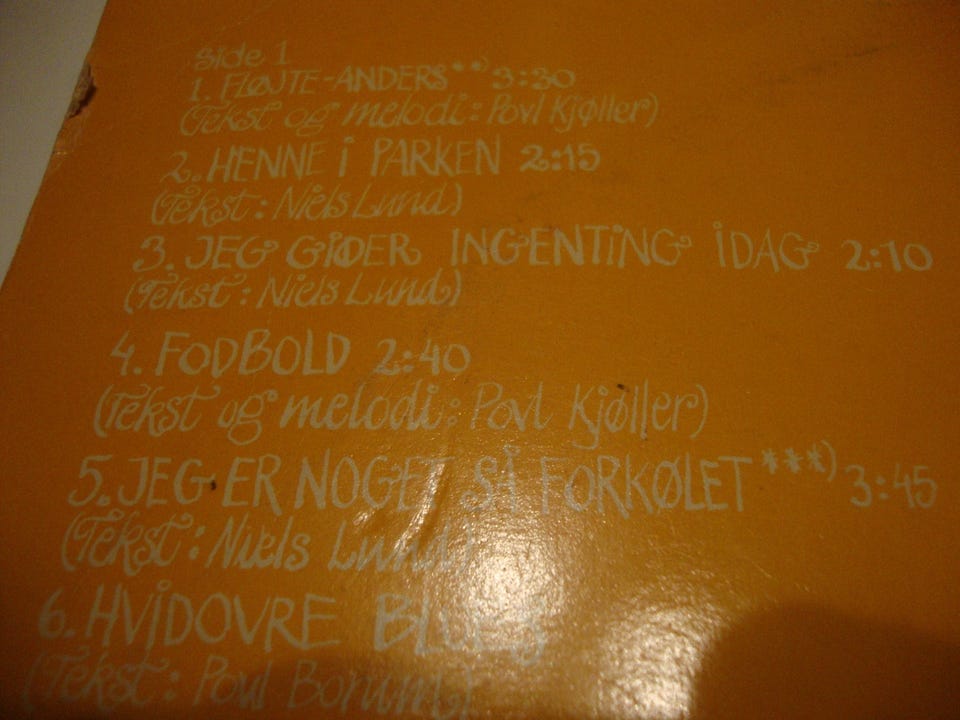 Side 1
1. FLØJTE-ANDERS **) 3:30
(Tekst og melodi: Povl Kjøller)
2. HENNE i PARKEN 2:15
(Tekst: Niels Lund)
3. JEG GIDER INGENTING IDAG 2:10
(Tekst: Niels Lund)
4. FODBOLD 2:40
(Tekst og melodi: Povl Kjøller)
5. JEG ER NOGET SÅ FORKØLET ***) 3:45
(Tekst: Niels Lund)
6. HVIDOVRE BLUES
(Tekst: Poul Borum)